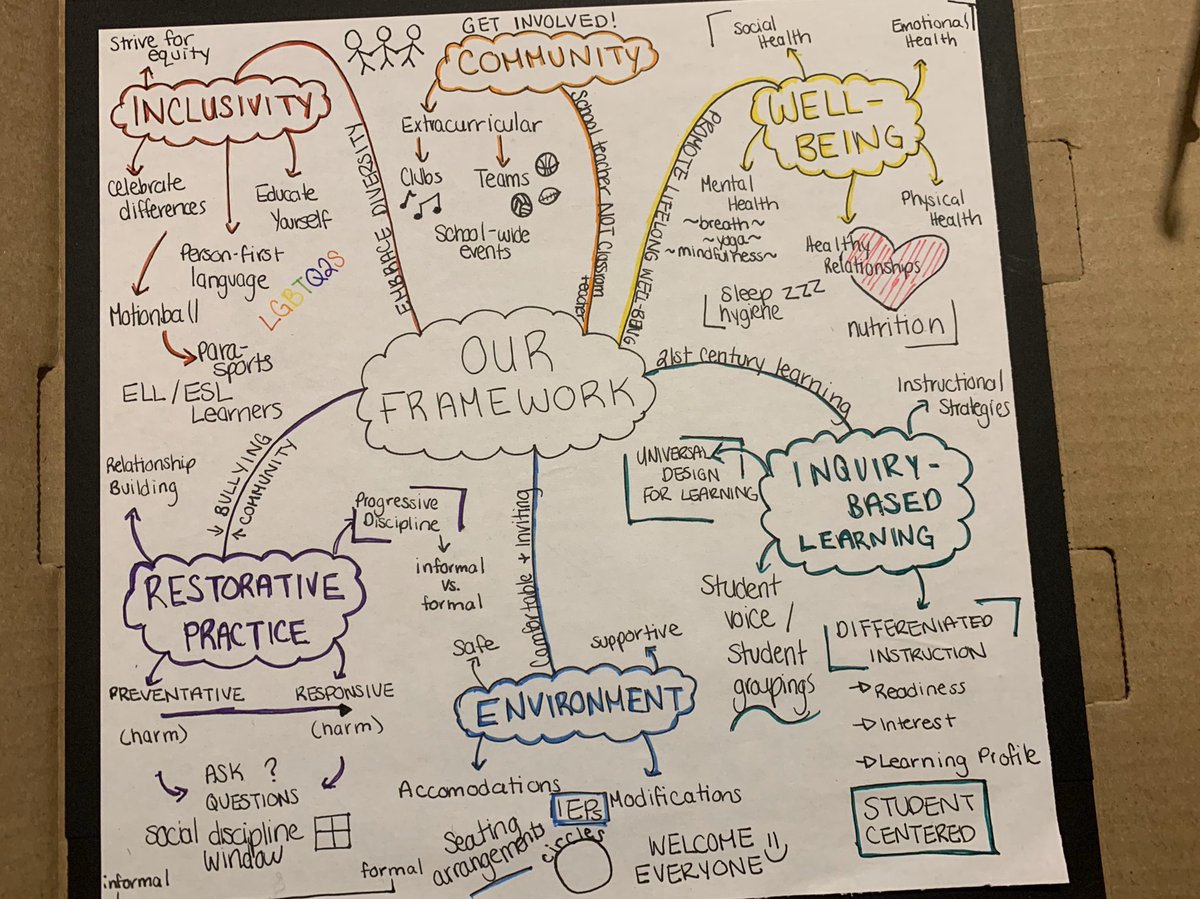 OUR
FRAMEWORK
EMBRACE DIVERSITY
INCLUSIVITY
Strive for
equity
Celebrate
differences
Motionball
Para-
sports
Person-first
language
Educate
Yourself
LGBTQ2S
ELL/ESL
Learners
GET INVOLVED!
COMMUNITY
School teacher NOT classroom
teacher
Extracurricular
Clubs
Teams
School-wide
events
PROMOTE LIFELONG WELL-BEING
WELL-
BEING
Social
Health
Emotional
Health
Mental
Health
~breath~
~yoga~
~mindfulness~
Physical
Health
Healthy
Relationships
Sleep ZZZ
hygiene
nutrition
21st century learning
INQUIRY-
BASED
LEARNING
Instructional
Strategies
UNIVERSAL
DESIGN
FOR LEARNING
Student
voice /
Student
groupings
DIFFERENIATED
INSTRUCTION
→ Readiness
→ Interest
→ Learning Profile
STUDENT
CENTERED
↓ BULLYING
↑ COMMUNITY
RESTORATIVE
PRACTICE
Relationship
Building
Progressive
Discipline
informal
vs.
formal
PREVENTATIVE
(harm)
RESPONSIVE
(harm)
ASK ?
QUESTIONS
social discipline
window
informal
formal
Comfortable + Inviting
ENVIRONMENT
Safe
supportive
Accomodations
IEPs
Modifications
Seating
arrangements
circles
WELCOME
EVERYONE